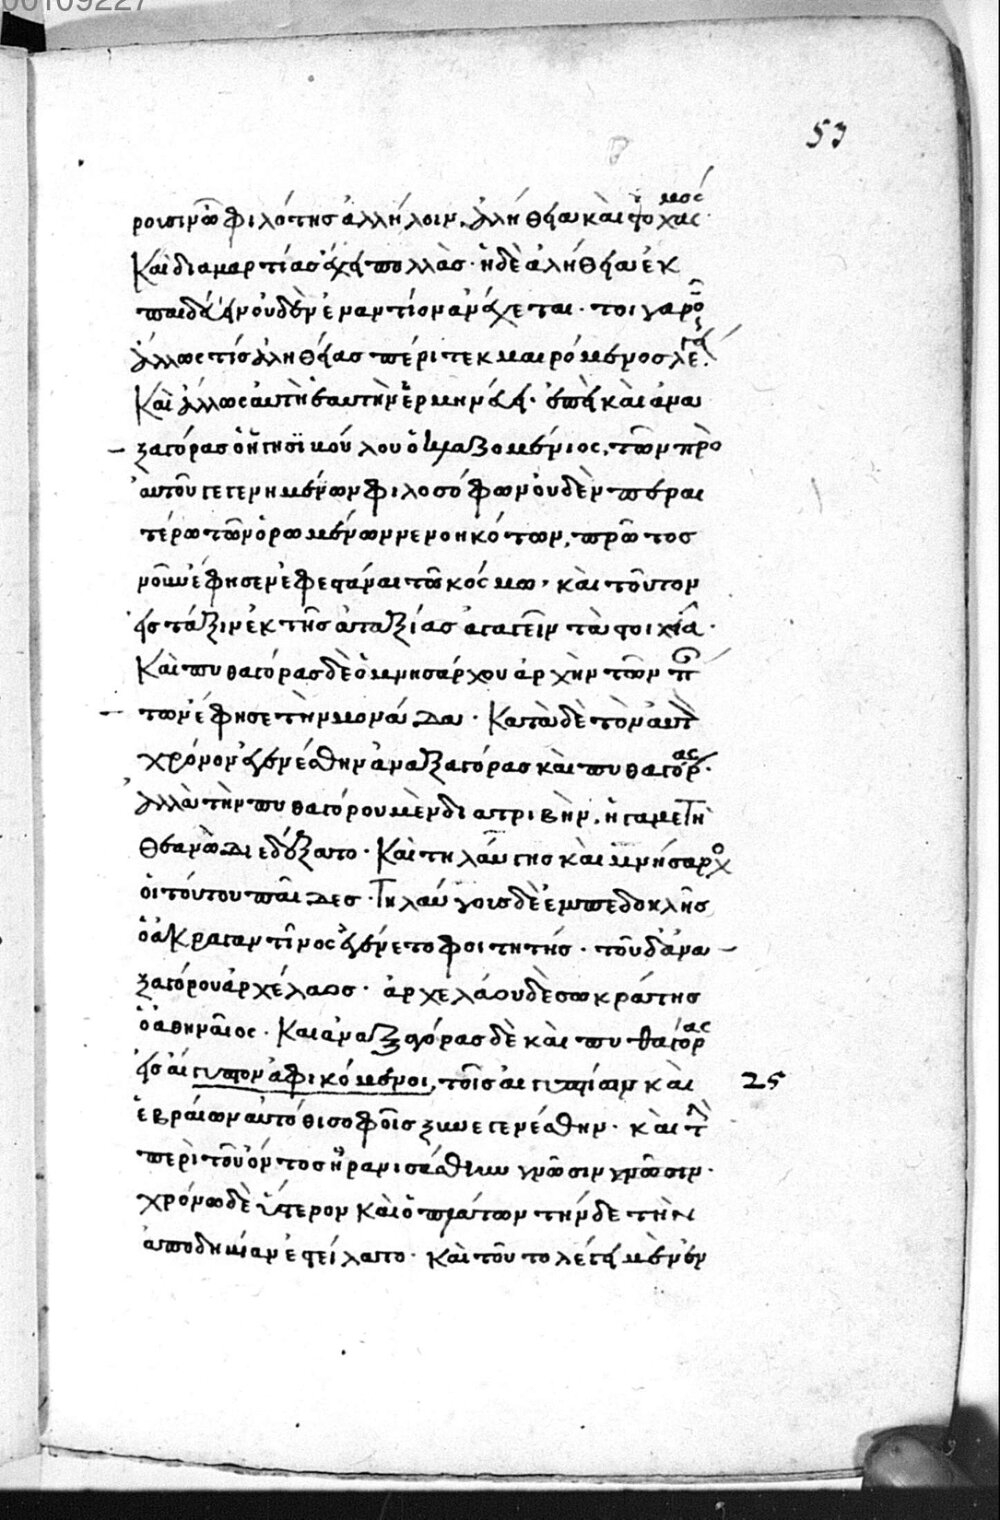 00109227
53
ροισιν ᾧ φιλότης ἀλλήλοιν. ἀληθείαι καὶ στοχασμός·
Καὶ διαμαρτίας ἔχει πολλὰς· ἡ δὲ ἀλήθεια ἐκ
παιδείαν οὐδὲν ἐναντίον ἀνέχεται. τοιγαροῦν
ἄλλως τίς ἀληθείας πέρι τεκμαιρόμενος λέγει.
Καὶ ἄλλως αὐτὴ ἑαυτὴν ἑρμηνεύει. ἐπεὶ καὶ ἀνα
ξαγόρας ὁ ἡγησϊκούλου ὁ κλαζομένιος, τῶν πρὸ
αὐτοῦ γεγενημένων φιλοσόφων οὐδὲν περαι
τέρω τῶν ὁρωμένων νενοηκότων, πρῶτος
νοῦν ἔφησεν ἐφεστάναι τῶ κόσμω, καὶ τοῦτον
εἰς τάξιν ἐκ τῆς ἀταξίας ἀγαγεῖν τὰ στοιχεῖα.
Καὶ πυθαγόρας δὲ ὁ μνησάρχου ἀρχὴν τῶν πάν
των ἔφησε τὴν μονάδα. Κατὰ δὲ τὸν αὐτὸν
χρόνον ἐγενέσθην ἀναξαγόρας καὶ πυθαγόρας.
ἀλλὰ τὴν πυθαγόρου μὲν διατριβὴν, ἡ γαμετὴ
θεανὼ διεδέξατο. Καὶ τηλαύγης καὶ μνήσαρχος
οἱ τούτου παῖδες. Τηλαύγοις δὲ ἐμπεδοκλῆς
ὁ ἀκραγαντῖνος ἐγένετο φοιτητής. τοῦ δ' ἀνα
ξαγόρου ἀρχέλαος. ἀρχελάου δὲ σωκράτης
ὁ ἀθηναῖος. Καὶ ἀναξαγόρας δὲ καὶ πυθαγόρας
εἰς αἴγυπτον ἀφικόμενοι, τοῖς αἰγυπτίων καὶ
25
ἑβραίων αὐτόθι σοφοῖς ξυνεγενέσθην. καὶ τὴν
περὶ τοῦ ὄντος ἠρανισάσθην γνῶσιν γνῶσιν.
χρόνω δὲ ὕστερον καὶ ὁ πλάτων τήνδε τὴν
ἀποδημίαν ἐστείλατο. καὶ τοῦτο λέγει μὲν ἐν